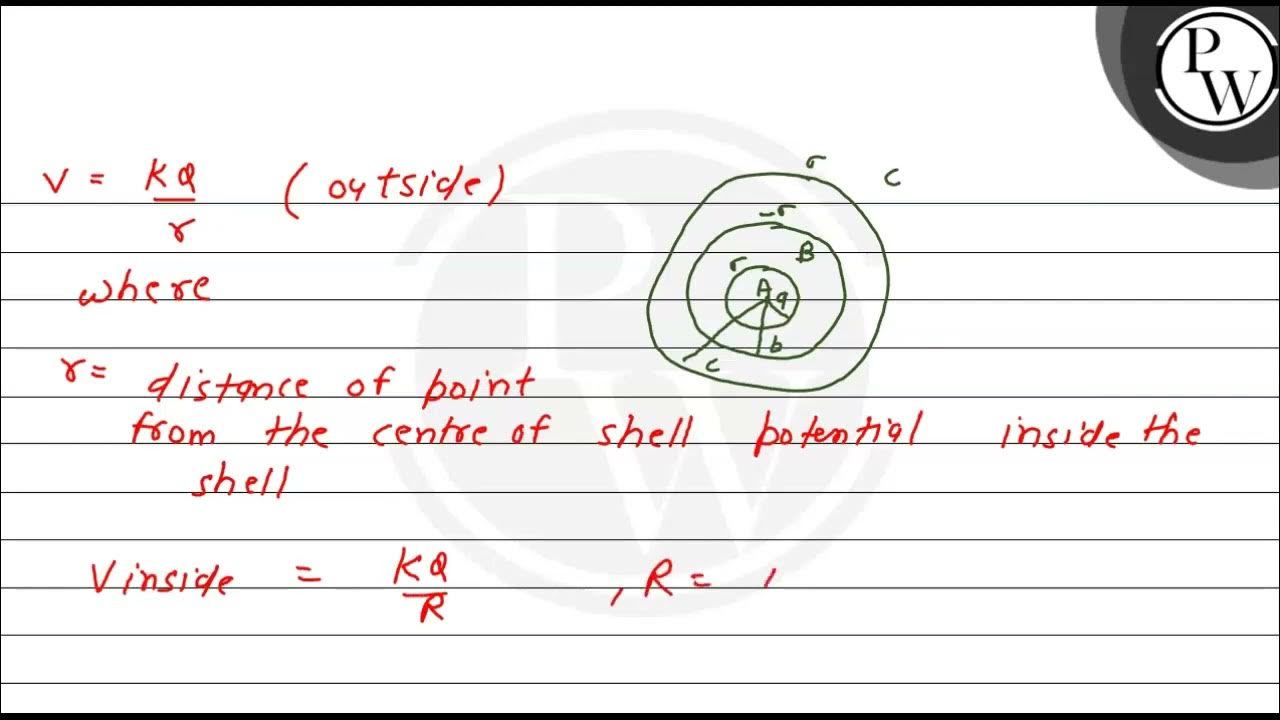 PW
σ
C
V = KQ/r (outside)
-σ
B
σ
A
a
where
b
c
r = distance of point
from the centre of shell potential inside the
shell
V inside = KQ/R , R =